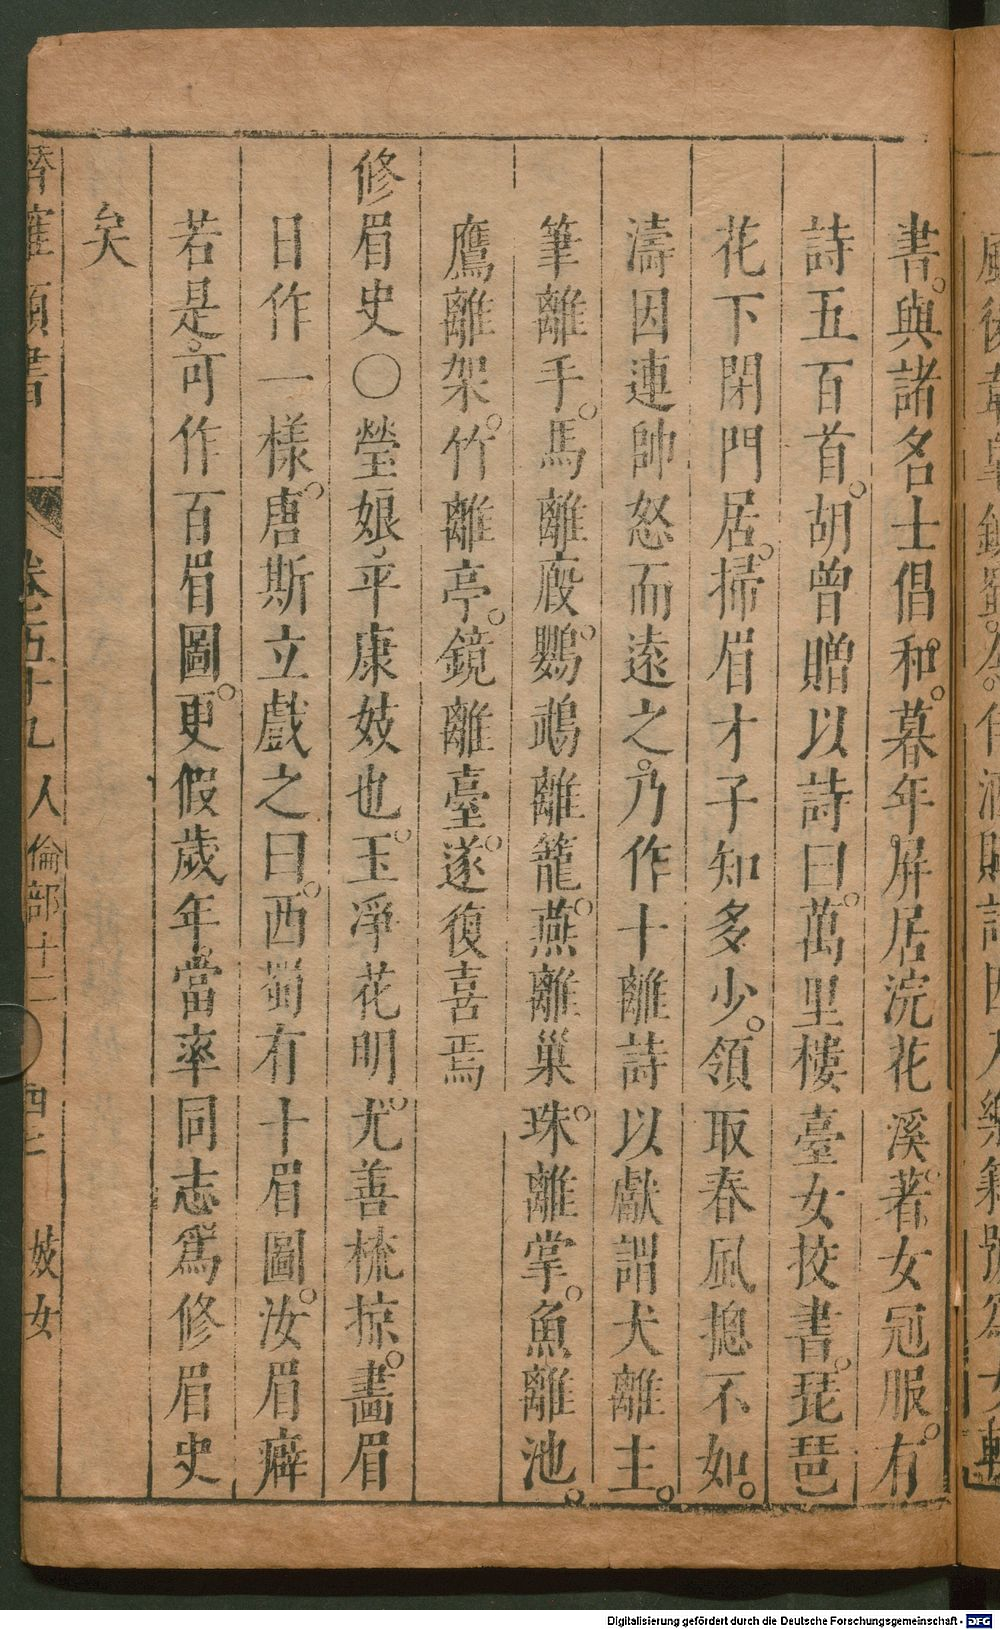 書。與諸名士倡和。暮年屏居浣花溪。著女冠服。有
詩五百首。胡曾贈以詩曰。萬里樓臺女挍書。琵琶
花下閉門居。掃眉才子知多少。領取春風摠不如。
濤因連帥怒而遠之。乃作十離詩以獻謂犬離主。
筆離手。馬離廄。鸚鵡離籠。燕離巢。珠離掌。魚離池。
鷹離架。竹離亭。鏡離臺。遂復喜焉
修眉史○瑩娘。平康妓也。玉淨花明。尤善梳掠。畵眉
日作一樣。唐斯立戲之曰。西蜀有十眉圖。汝眉癖
若是。可作百眉圖。更假歲年。當率同志爲修眉史
矣
類書 卷五十九 人倫部十二 四七 妓女
Digitalisierung gefördert durch die Deutsche Forschungsgemeinschaft - DFG